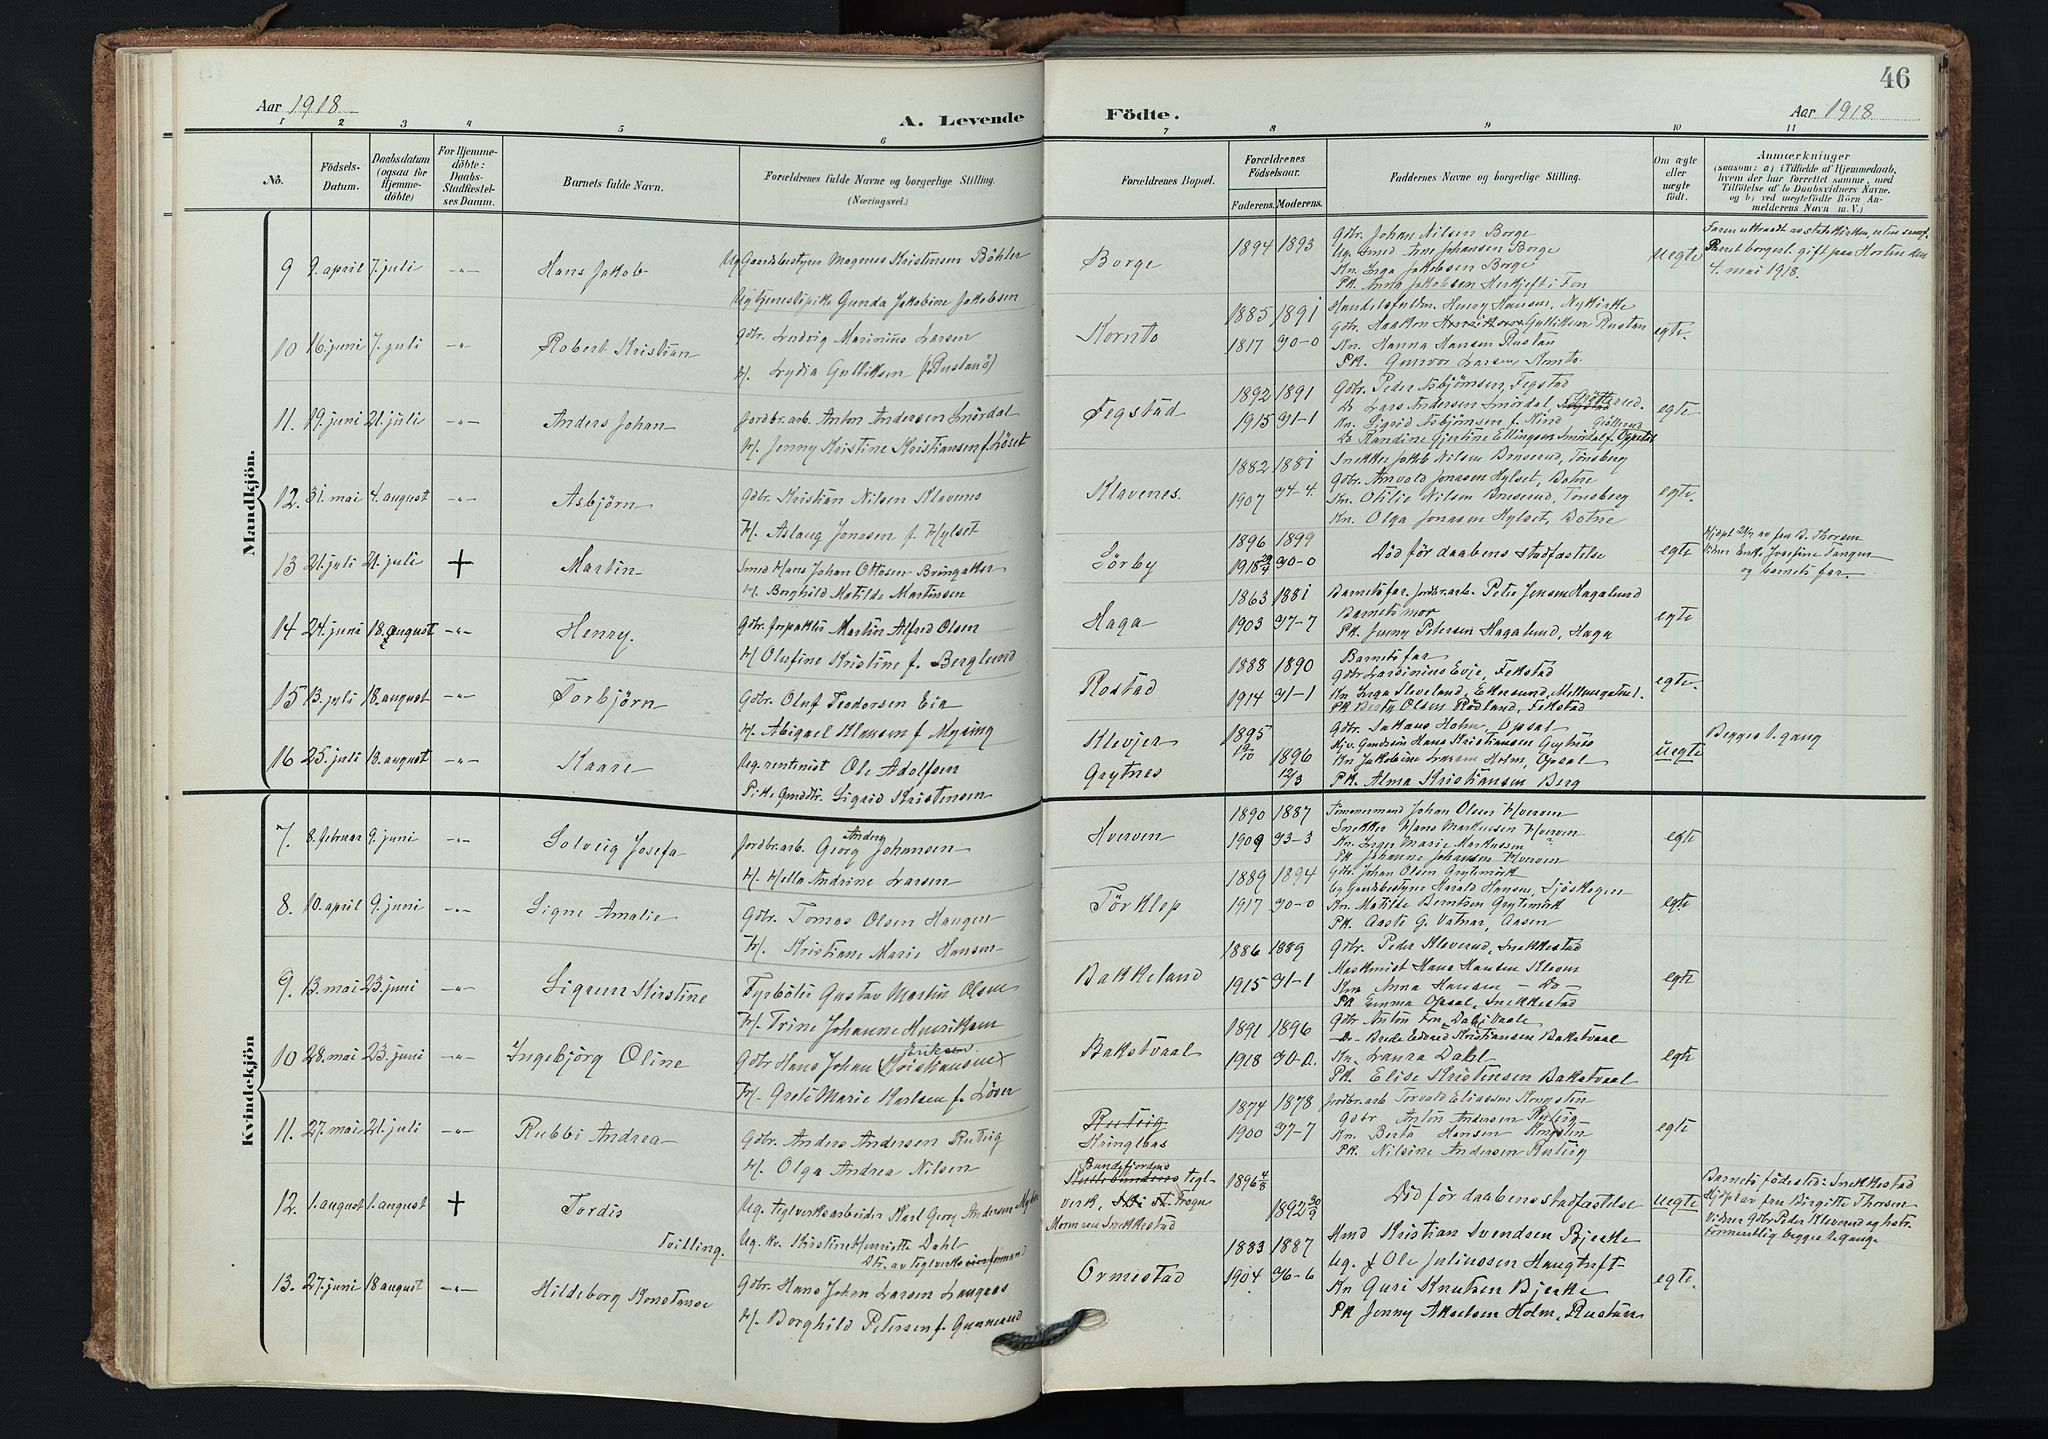 46
Aar 1918
A. Levende Födte.
Aar 1918
1 2 3 4 5 6 7 8 9 10 11
No.
Födsels-Datum.
Daabsdatum (ogsaa for Hjemme-döbte)
For Hjemme-döbte: Daabs-Stadfæstel-ses Datum.
Barnets fulde Navn.
Forældrenes fulde Navne og borgerlige Stilling.
(Næringsvei.)
Forældrenes Bopæl.
Forældrenes Födselsaar.
Faderens. Moderens.
Faddernes Navne og borgerlige Stilling.
Om ægte eller uægte födt.
Anmærkninger
(saasom: a) i Tilfælde af Hjemmedaab,
hvem der har forrettet samme, med
Tilföielse af to Daabsvidners Navne,
og b) ved uegtefödte Börn An-
melderens Navn m. V.)
Mandkjön.
9 9. april 7. juli -"- Hans Jakob
Ug Gaardsbestyrer Magnus Kristensen Böhler
Ug tjenestepike Gunda Jakobine Jakobsen
Borge
1894 1893
Gdbr. Johan Nilsen Borge
Ug. Smed Johansen Borge
Kn. Inga Jakobsen Borge
Pk. Anna Jakobsen
Uegte
4. mai 1918.
10 16. juni 7. juli -"- Robert Kristian
Gdbr. Ludvig Marinius Larsen
H. Lydia Gulliksen (f. Rustanö)
Komto
1885 1891
1817 30-0
Handelsfuldm. Henry Hansen, Nykirke
Gdbr. Haaken Gulliksen Rustan
Kn. Hanna Hansen Rustan
Pk. Gunvor Larsen Komto
egte
11. 19. juni 21. juli -"- Anders Johan
Jordbr. arb. Anton Andersen Smördal
H. Jenny Kristine Kristiansen f. Löset
Fegstad
1892 1891
1915 31-1
Gdbr. Peder Asbjörnsen, Fegstad
Do Lars Andersen Smördal,
Kn. Sigrid Asbjörnsen f. Rind
Do Randine Gjertine Ellingsen Smördal f. Opstad
egte
12. 31. mai 4. august -"- Asbjörn
Gdbr. Kristian Nilsen Klavenes
H. Aslaug Jonasen f. Hylset
Klavenes.
1882 1881
1907 34-4.
Snekker Jakob Nilsen Bruserud, Tönsberg
Gdbr. Anvold Jonasen Hylset, Botne
Kn. Otilie Nilsen Bruserud, Tönsberg
Kn. Olga Jonasen Hylset, Botne
egte
13 21. juli 21. juli + Martin
Smed Hans Johan Ottosen Bringaker
H. Borghild Matilde Martinsen
Sörby
1896 1899
1918 29/4 30-0
Död för daabens stadfæstelse
egte
Hjdpt 21/7 av fru B. Thorsen
Vidner Enke Josefine Tangen
og barnets far.
14 24. juni 18. august -"- Henry.
Gdbr. forpakter Martin Alfred Olsen
H Olufine Kristine f. Berglund
Haga
1863 1881
1903 37-7
Barnets far. Jordbr. arb. Peter Jensen Hagalund
Barnets mor
Pk. Jenny Petersen Hagalund, Haga
egte
15 13. juli 18. august -"- Torbjörn
Gdbr. Oluf Teodorsen Eia
H. Abigael Klausen f. Mysing
Rostad
1888 1890
1914 31-1
Barnets far
Gdbr Lardinius Evje, Fekstad
Kn. Inga Sleveland, Ekersund,
Pk Berta Olsen Rödland, Fekstad
egte.
16 25. juli 18. august -"- Kaare
Ug. rentenist Ole Adolfsen
Pike Gmddtr. Sigrid Kristensen
Klevjer
Grytnes
1895 12/10
1896 12/3
Gdbr. Holm, Opsal
Kjv. Gmdsön Hans Kristiansen Grytnes
Kn Jakobine Larsen Holm, Opsal
Pk. Alma Kristiansen Berg
Uegte
Begges 1. gang
Kvindekjön
7. 8. februar 9. juni -"- Solveig Josefa
Jordbr. arb. Georg Anders Johansen
H. Hella Andrine Larsen
Hverven
1890 1887
1909 33-3
Tömmermand Johan Olsen Hverven
Snekker Hans Markussen Hverven
Kn. Inger Marie Markussen
Pk Johanne Johansen Hverven
egte
8. 10. april 9. juni -"- Signe Amalie
Gdbr. Tomas Olsen Haugen
H. Kristiane Marie Hansen
Törklep
1889 1894
1917 30-0
Gdbr. Johan Olsen Grytemörk
Ug Gaardsbestyrer Harald Hansen, Sjöskogen
Kn. Matilde Berntsen Grytemörk
Pk. Aaste G. Vatnar, Aasen
egte
9. 13. mai 23. juni -"- Sigrun Kirstine
Fyrböter Gustav Martin Olsen
H. Trine Johanne Henriksen
Bakkeland
1886 1889
1915 31-1
Gdbr. Peder Kleverud, Snekkestad
Maskinist Hans Hansen Klaven
Kna Anna Hansen -Do-
Pk Emma Opsal, Snekkestad
egte
10 28. mai 23. juni -"- Ingebjörg Oline
Gdbr Hans Johan (Kristiansen) Eriksen
H. Grete Marie Karlsen f. Löver
Bakstvaal
1891 1896
1918 30-0.
Gdbr Anton Fon, Dal i Vaale
Edvard Kristiansen Bakstvaal
Kn. Laura Dahl
Pk. Elise Kristensen Bakstvaal
egte
11. 27. mai 21. juli -"- Rubbi Andrea
Gdbr. Anders Andersen Ruteig
H. Olga Andrea Nilsen
Ruteig
Kringlaas
1874 1878
1900 37-7
Jordbr. arb Torvald Eliassen Kongstin
Gdbr Anton Andersen Ruteig
Kn. Berta Hansen Kongstin
Pk. Nilsine Andersen Ruteig
egte
12. 1. august 1. august + Tordis
Tvilling.
Ug. teglverksarbeider Karl Georg Andersen
Ug. kv. Kristine Henriette Dahl
Dtr. av teglverksformand
Bundefjordens tegl-
verk, Frogn
Moren Snekkestad
1896 4/8
1892 30/9
Död för daabens stadfæstelse
Uegte
Barnets födested: Snekkestad
Hjdpt av fru Birgitte Thorsen
Vidner Gdbr Peder Kleverud og hstr.
Formentlig begges 1. gang
13. 27. juni 18 august -"- Hildeborg Konstanse
Gdbr. Hans Johan Larsen Langaas
H. Borghild Petersen f. Gunnerud
Ormestad
1883 1887
1904 36-6
Hmd Kristian Svendsen Bjerke
Ug. f Ole Juliussen Haugtuft
Kn Guri Knutsen Bjerke
Pk Jenny Akselsen Holm, Rustan
egte